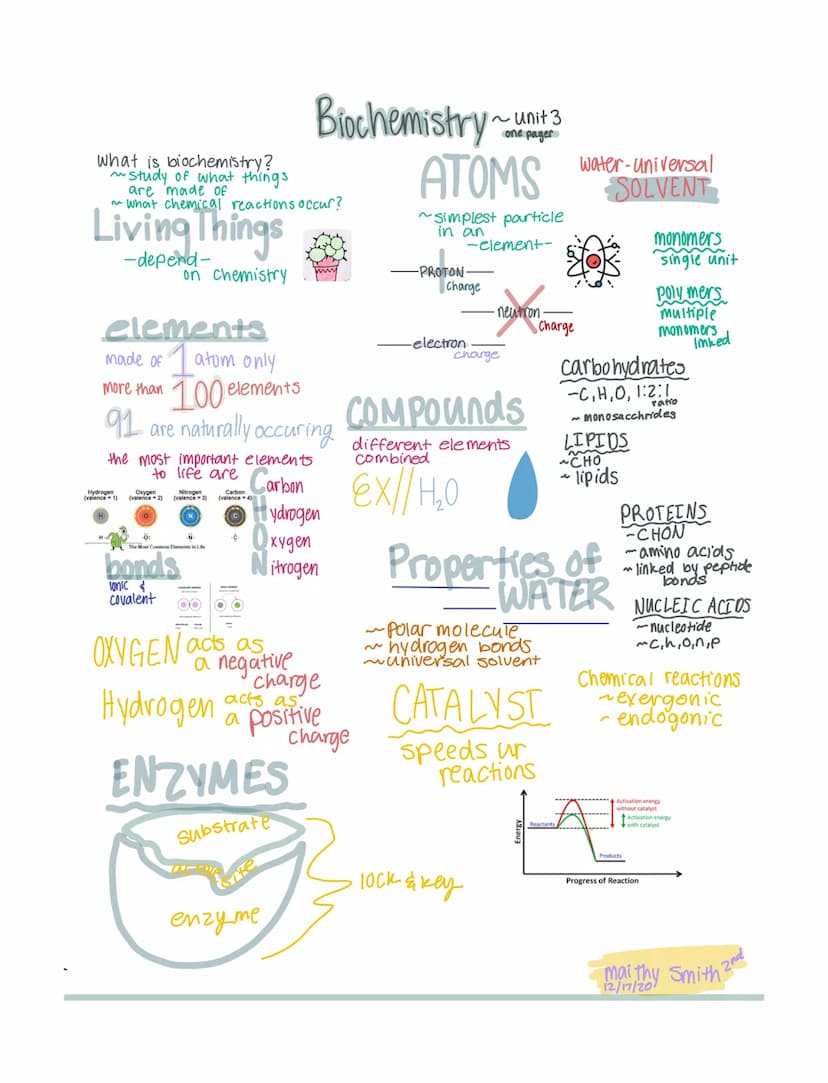 Biochemistry ~ unit 3
one pager
what is biochemistry?
~ study of what things
are made of
~ what chemical reactions occur?
Living Things
-depend-
on chemistry
elements
made of 1 atom only
more than 100 elements
91 are naturally occuring
the most important elements
to life are
Carbon
Hydrogen
Oxygen
Nitrogen
Hydrogen
(valence = 1)
Oxygen
(valence = 2)
Nitrogen
(valence = 3)
Carbon
(valence = 4)
The Most Common Elements in Life
bonds
ionic &
covalent
OXYGEN acts as
a negative
charge
Hydrogen acts as
a positive
charge
ENZYMES
substrate
active site
enzyme
lock & key
ATOMS
~simplest particle
in an
-element-
PROTON
+
charge
neutron
charge
electron
charge
COMPOUNDS
different elements
combined
EX// H₂O
Properties of
WATER
~ Polar molecule
~ hydrogen bonds
~ universal solvent
CATALYST
speeds ur
reactions
water-universal
SOLVENT
monomers
single unit
polymers
multiple
monomers
linked
carbohydrates
-C, H, O, 1:2:1
ratio
~ monosacchrides
LIPIDS
~CHO
~ lipids
PROTEINS
-CHON
~ amino acids
~ linked by peptide
bonds
NUCLEIC ACIDS
~nucleotide
~C, h, O, n, P
Chemical reactions
~exergonic
~ endogonic
Energy
Reactants
Products
Activation energy
without catalyst
Activation energy
with catalyst
Progress of Reaction
maithy Smith 2nd
12/17/20